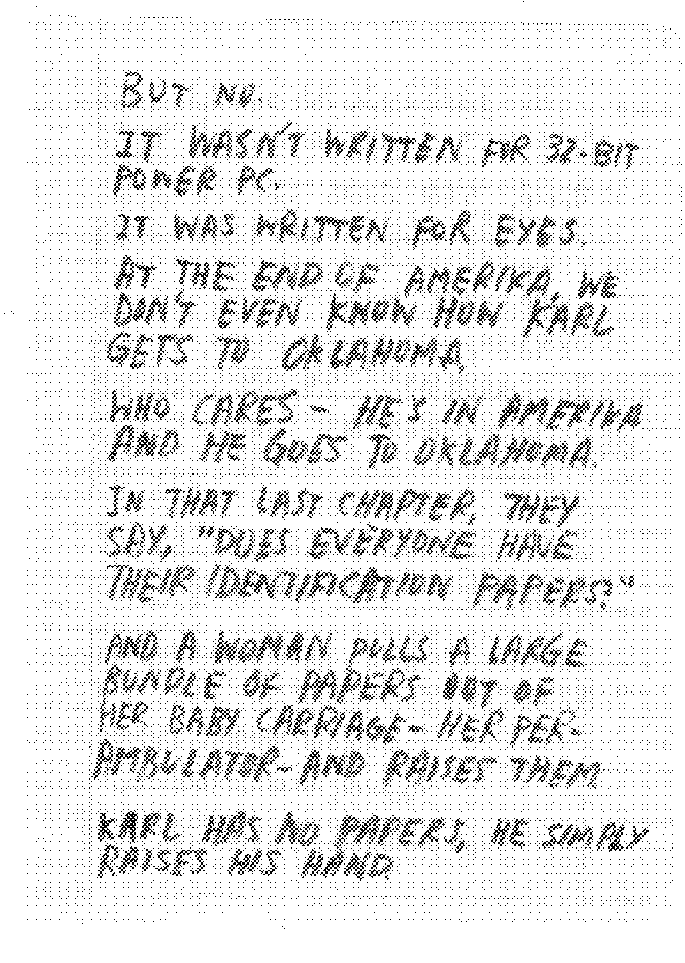 BUT NO.
IT WASN'T WRITTEN FOR 32-BIT
POWER PC.
IT WAS WRITTEN FOR EYES.
AT THE END OF AMERIKA, WE
DON'T EVEN KNOW HOW KARL
GETS TO OKLAHOMA.
WHO CARES - HE'S IN AMERIKA
AND HE GOES TO OKLAHOMA.
IN THAT LAST CHAPTER, THEY
SAY, "DOES EVERYONE HAVE
THEIR IDENTIFICATION PAPERS?"
AND A WOMAN PULLS A LARGE
BUNDLE OF PAPERS OUT OF
HER BABY CARRIAGE - HER PER-
AMBULATOR - AND RAISES THEM.
KARL HAS NO PAPERS, HE SIMPLY
RAISES HIS HAND.